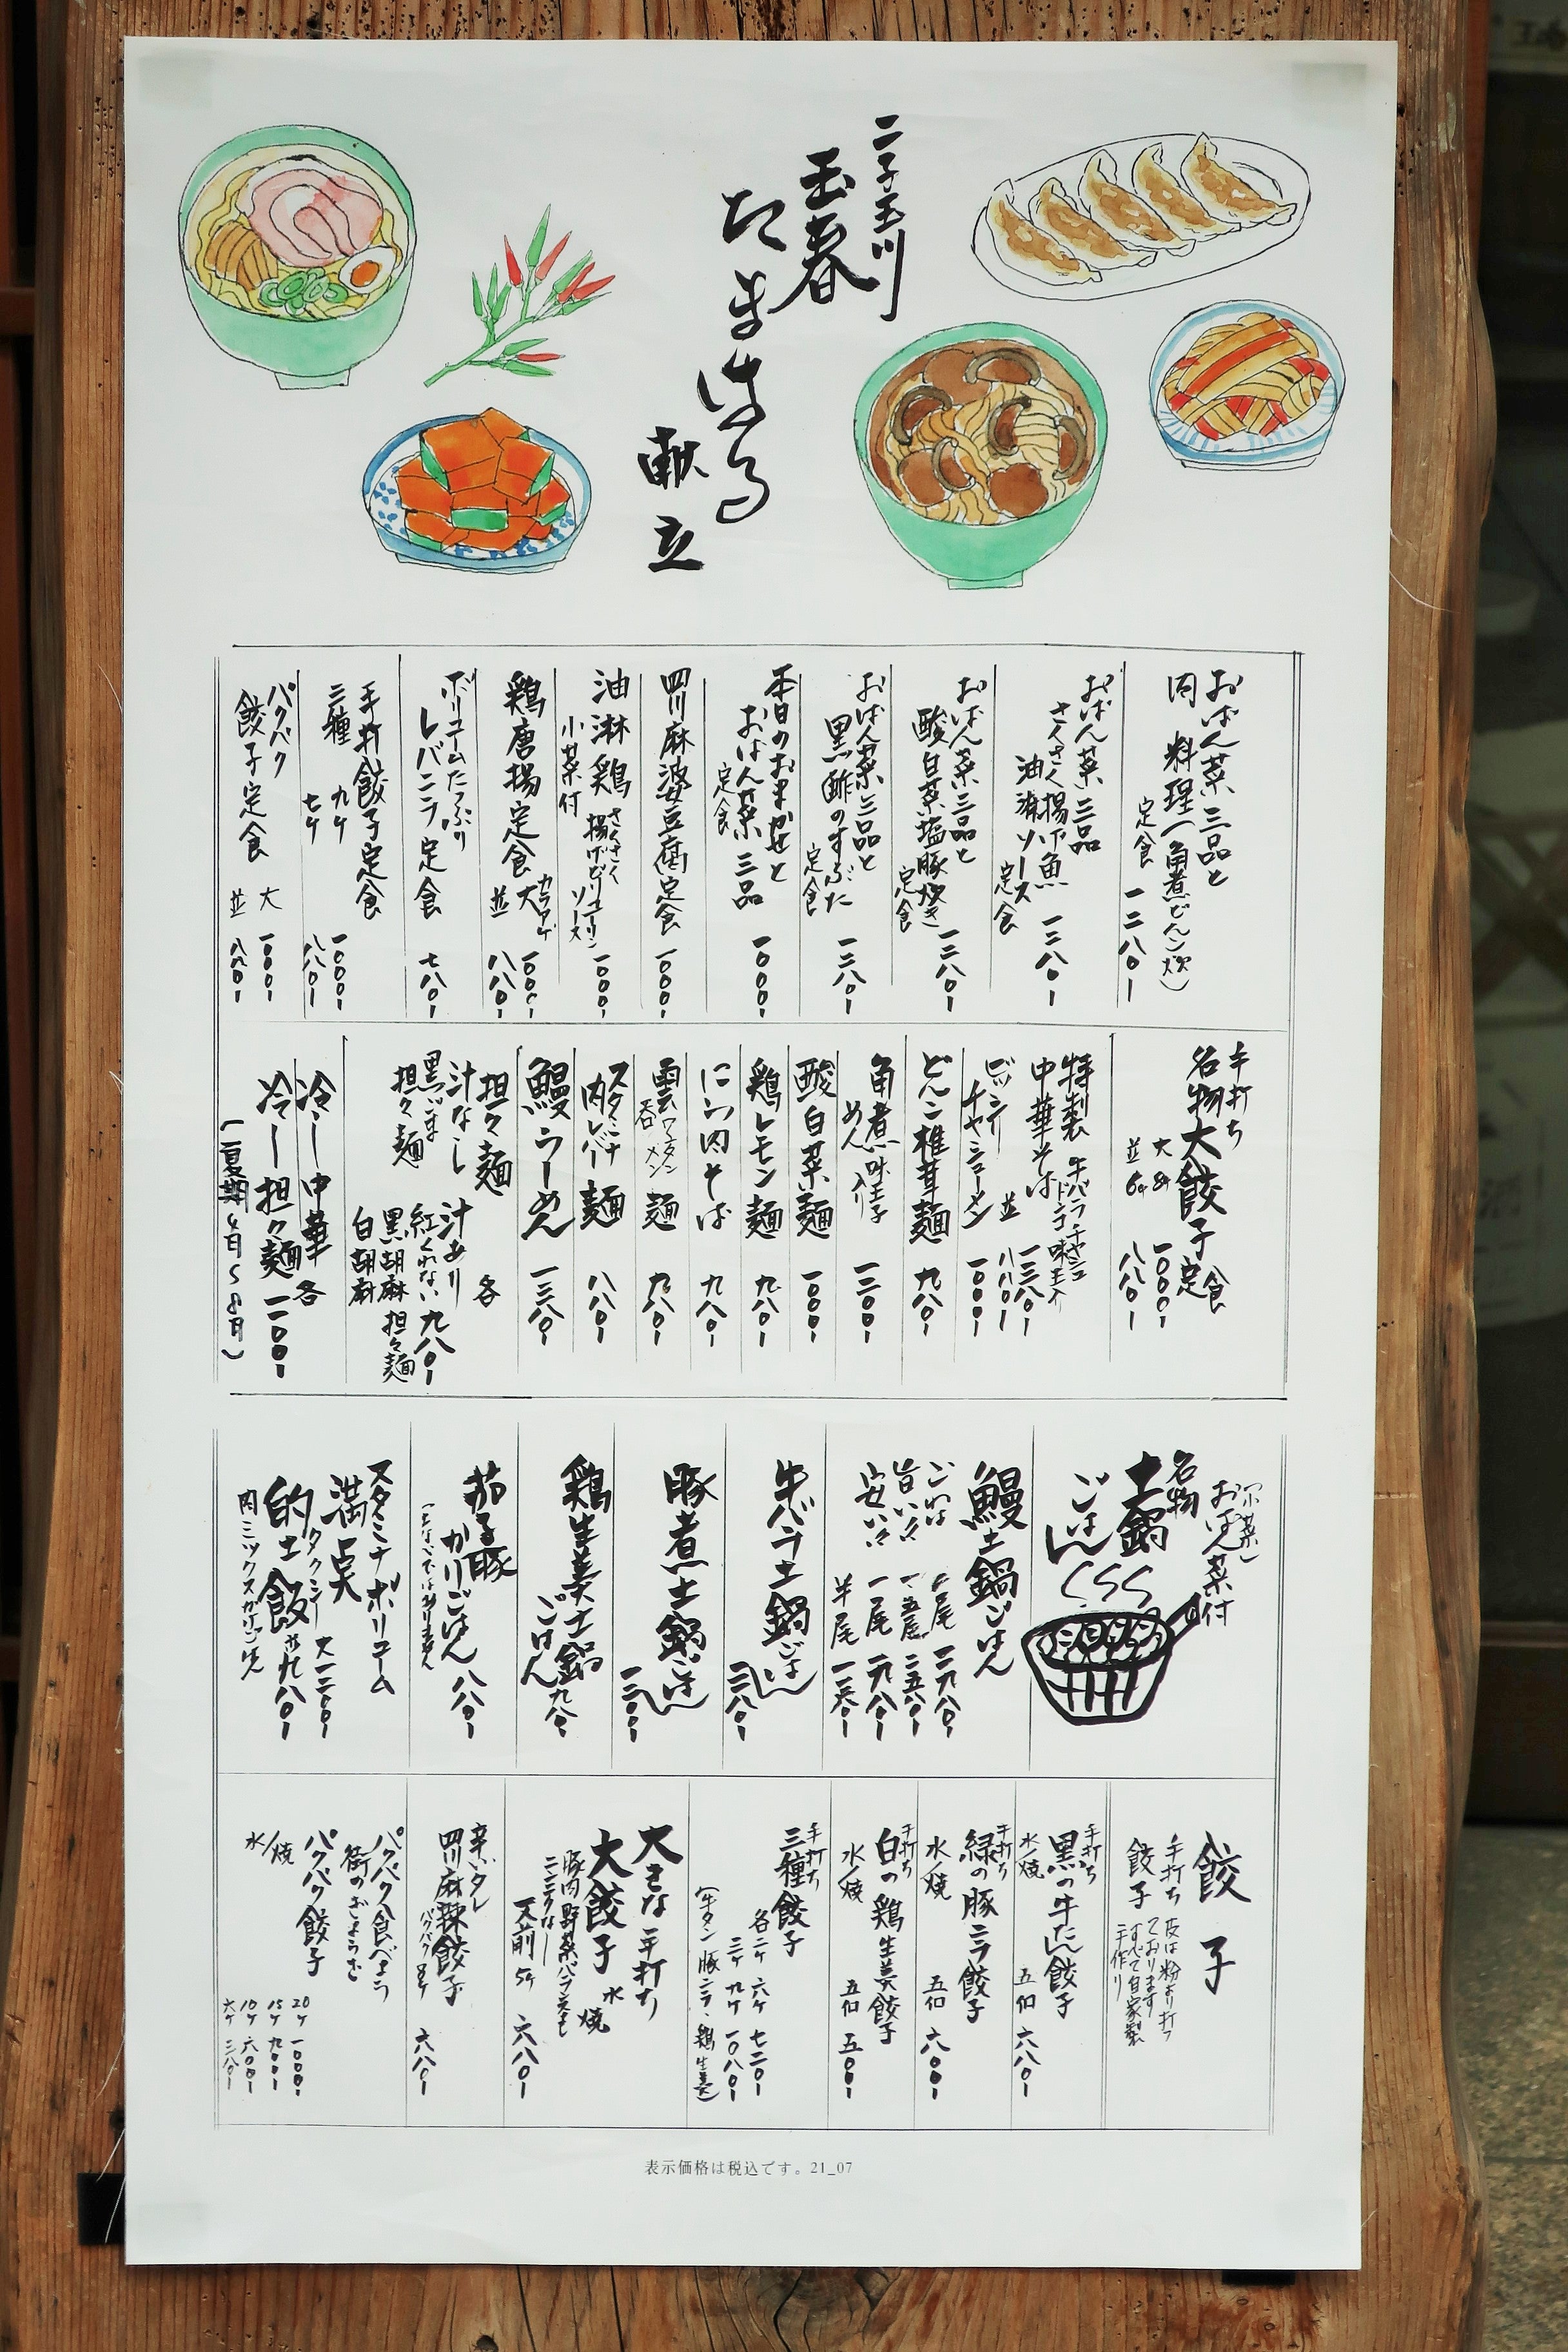 二子玉川
玉春
たまはる
献立
おばん菜三品と
肉料理(角煮どんこ炊)
定食 一二八〇ー
おばん菜三品
さくさく揚げ魚
油淋ソース
定食 一二八〇ー
おばん菜三品と
酸白菜塩豚炊き
定食 一二八〇ー
おばん菜三品と
黒酢のすぶた
定食 一二八〇ー
本日のおまかせと
おばん菜三品
定食 一〇〇〇ー
四川麻婆豆腐定食 一〇〇〇ー
油淋鶏 さくさく揚げどりユーリンソース 一〇〇〇ー
小菜付
鶏唐揚定食 カラアゲ
大 一〇〇〇ー
並 八八〇ー
ボリュームたっぷり
レバニラ定食 七八〇ー
手打餃子定食
三種 九ケ 一〇〇〇ー
七ケ 八八〇ー
パクパク
餃子定食 大 一〇〇〇ー
並 八八〇ー
手打ち
名物大餃子定食
大8ケ 一〇〇〇ー
並6ケ 八八〇ー
特製
中華そば 牛バラチャーシュー 味玉入 一二八〇ー
並 八八〇ー
チャーシューメン 一〇〇〇ー
どんこ椎茸麺 九八〇ー
角煮めん 味玉子入り 一二〇〇ー
酸白菜麺 一〇〇〇ー
鶏レモン麺 九八〇ー
にら肉そば 九八〇ー
雲呑麺 ワンタンメン 九八〇ー
スタミナ
肉レバー麺 八八〇ー
鰻らーめん 一三八〇ー
担々麺 各
汁なし 汁あり
黒ごま 紅くれない 九八〇ー
担々麺 黒胡麻 担々麺
白胡麻
冷し中華 各
冷し担々麺 一一〇〇ー
(夏期4月〜8月)
(小菜)
おばん菜付
名物
土鍋
ごはん
鰻土鍋ごはん
ごはん 一尾 一九八〇ー
旨い々 一、五尾 二五八〇ー
安い々 一尾 一九八〇ー
半尾
牛バラ土鍋ごはん 一二八〇ー
豚煮土鍋ごはん 一二〇〇ー
鶏生姜土鍋
ごはん 九八〇ー
茄子豚
かりごはん 八八〇ー
スタミナボリューム
満点 タクシー 大一二〇〇ー
的士飯 並九八〇ー
肉ミックスカケごはん
餃子
手打ち
餃子
皮は粉より打って
おります
すべて自家製
手作り
手打ち
黒の牛たん餃子
水/焼 五個 六八〇ー
手打ち
緑の豚ニラ餃子
水/焼 五個 六〇〇ー
手打ち
白の鶏生姜餃子
水/焼 五個 五〇〇ー
手打ち
三種餃子
各二ケ 六ケ 七二〇ー
三ケ 九ケ 一〇八〇ー
(牛タン 豚ニラ 鶏生姜)
大きな手打ち
大餃子 水 焼
豚肉野菜バランスも
ニンニクなし
一人前 5ケ 六八〇ー
辛いタレ
四川麻辣餃子
パクパク8ケ 六八〇ー
パクパク食べよう
街のぎょうざ
パクパク餃子
水/焼
20ケ 一〇〇〇ー
15ケ 九〇〇ー
10ケ 六〇〇ー
六ケ 三八〇ー
表示価格は税込です。21_07